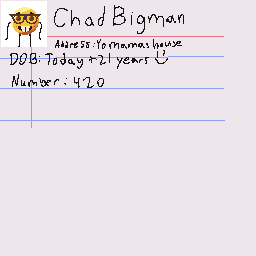 Chad Bigman
Address: Yo mamas house
DOB: Today +21 years :)
Number: 420